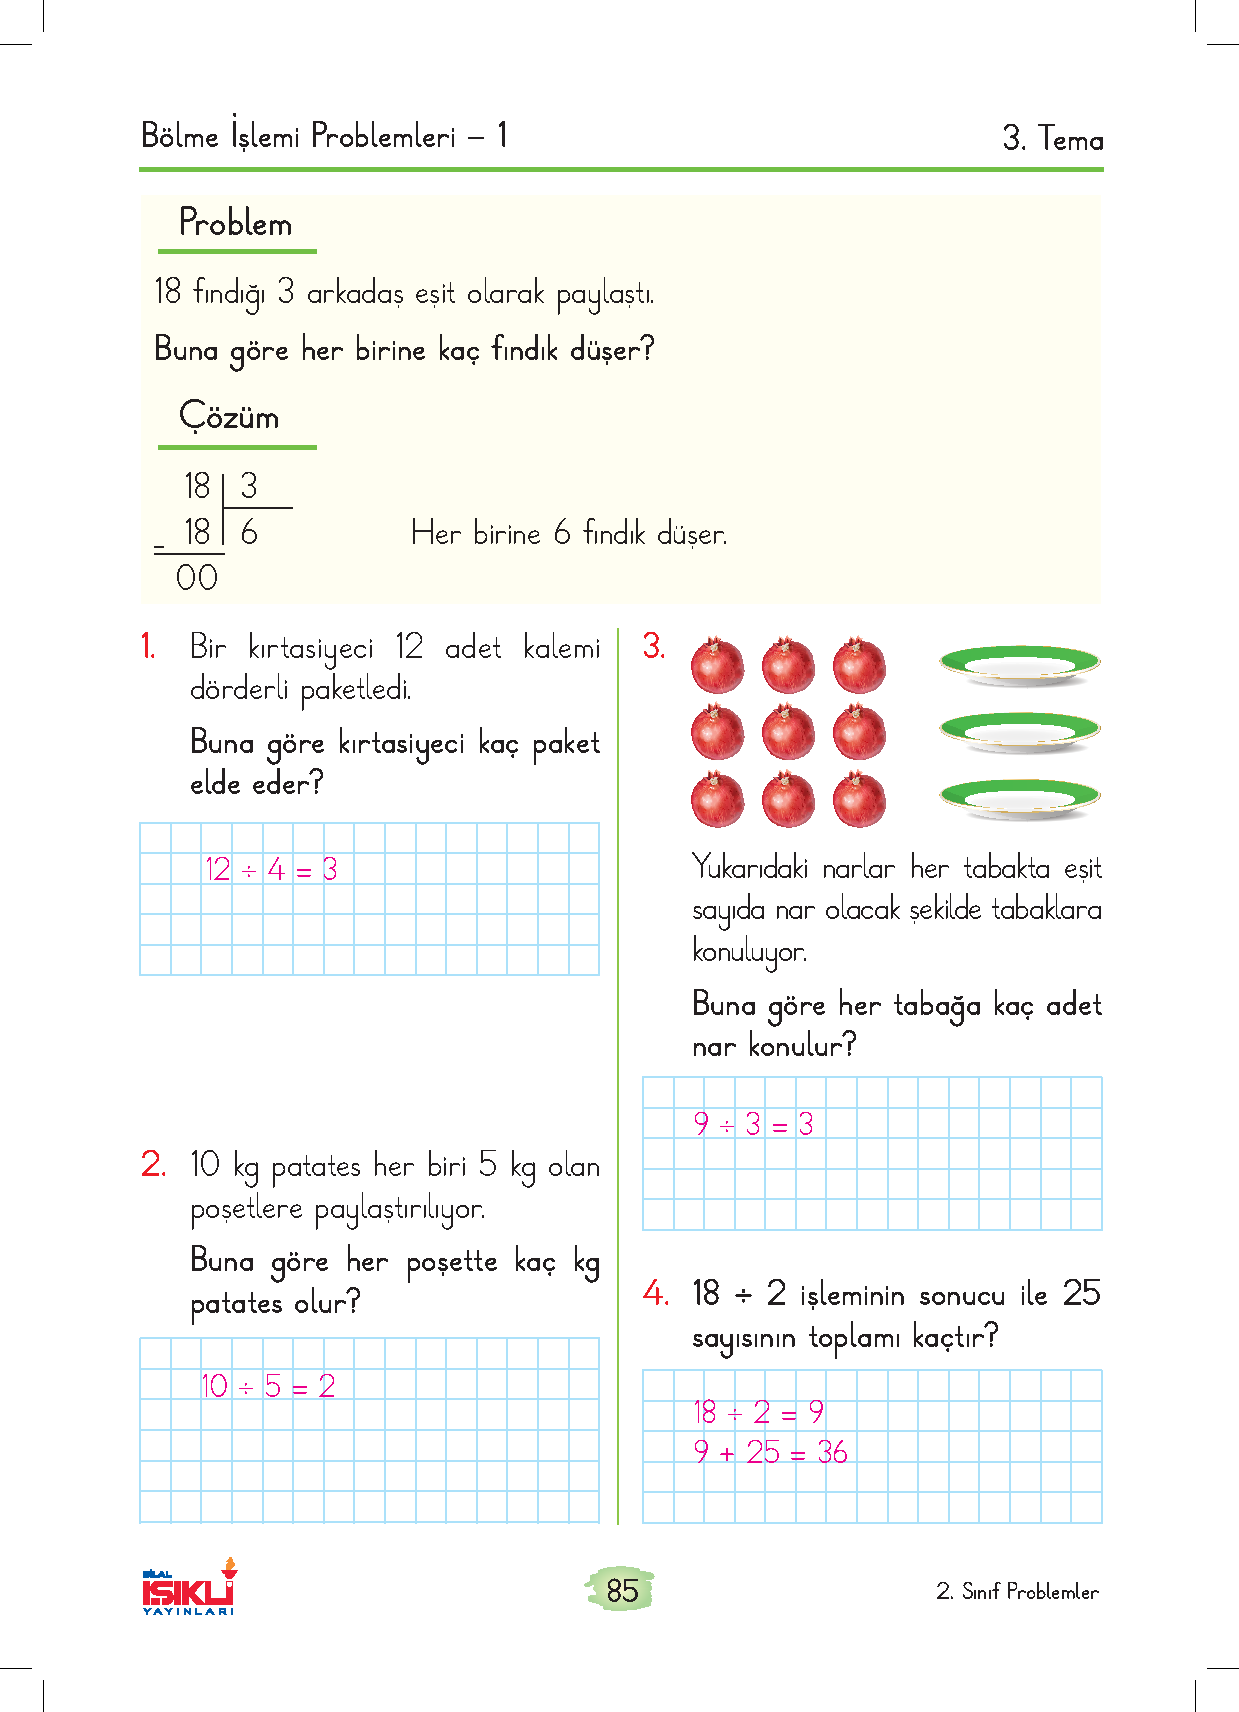 Bölme İşlemi Problemleri – 1
3. Tema
Problem
18 fındığı 3 arkadaş eşit olarak paylaştı.
Buna göre her birine kaç fındık düşer?
Çözüm
18 3
- 18 6
Her birine 6 fındık düşer.
00
1. Bir kırtasiyeci 12 adet kalemi
dörderli paketledi.
Buna göre kırtasiyeci kaç paket
elde eder?
12 ÷ 4 = 3
2. 10 kg patates her biri 5 kg olan
poşetlere paylaştırılıyor.
Buna göre her poşette kaç kg
patates olur?
10 ÷ 5 = 2
3.
Yukarıdaki narlar her tabakta eşit
sayıda nar olacak şekilde tabaklara
konuluyor.
Buna göre her tabağa kaç adet
nar konulur?
9 ÷ 3 = 3
4. 18 ÷ 2 işleminin sonucu ile 25
sayısının toplamı kaçtır?
18 ÷ 2 = 9
9 + 25 = 36
BİLAL
IŞIKLI
YAYINLARI
85
2. Sınıf Problemler